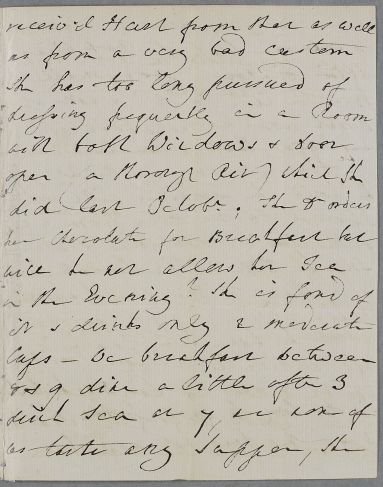 receiv'd Hurt from that as well
as from a very bad custom
She has too long pursued of
dressing frequently in a Room
with both Windows & Door
open (a thorough Air) which She
did last Octobr. ; The Dr orders
her Chocolate for Breakfast but
will he not allow her Tea
in the Evening? She is fond of
it & drinks only 2 moderate
Cups - We breakfast between
8 & 9 dine a little after 3
drink Tea at 7, we none of
us taste any Supper, She